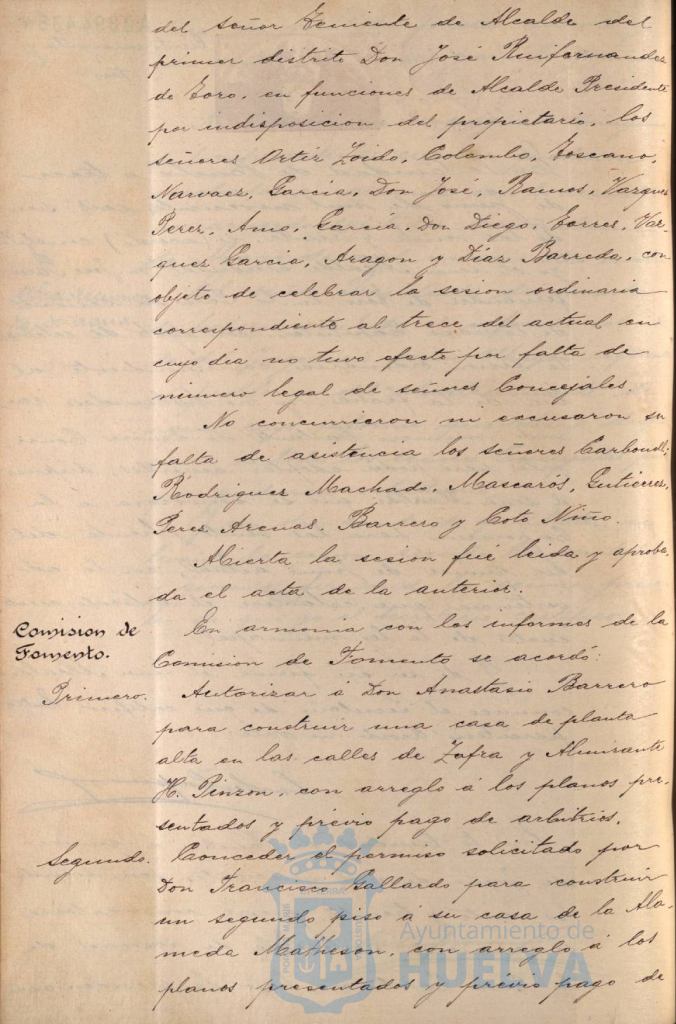 del señor Teniente de Alcalde del
primer distrito Don José Ruifernandez
de Toro, en funciones de Alcalde Presidente
por indisposicion del propietario, los
señores Ortiz Zoido, Colombo, Toscano,
Narvaez, Garcia, Don José, Ramos, Vazquez
Perez, Amo, Garcia, Don Diego, Torres, Vaz-
quez Garcia, Aragon y Diaz Barreda, con
objeto de celebrar la sesion ordinaria
correspondiente al trece del actual en
cuyo dia no tuvo efecto por falta de
número legal de señores Concejales.
No concurrieron ni excusaron su
falta de asistencia los señores Carbonell,
Rodriguez Machado, Mascarós, Gutierrez,
Perez Arenas, Barrero y Coto Niño.
Abierta la sesion fué leida y aproba-
da el acta de la anterior.
Comision de
Fomento.
En armonia con los informes de la
Comision de Fomento se acordó:
Primero.
Autorizar á Don Anastasio Barrero
para construir una casa de planta
alta en las calles de Zafra y Almirante
H. Pinzon, con arreglo á los planos pre-
sentados y prévio pago de arbitrios.
Segundo.
Conceder el permiso solicitado por
Don Francisco Gallardo para construir
un segundo piso á su casa de la Ala-
meda Matheson, con arreglo á los
planos presentados y prévio pago de
Ayuntamiento de
HUELVA